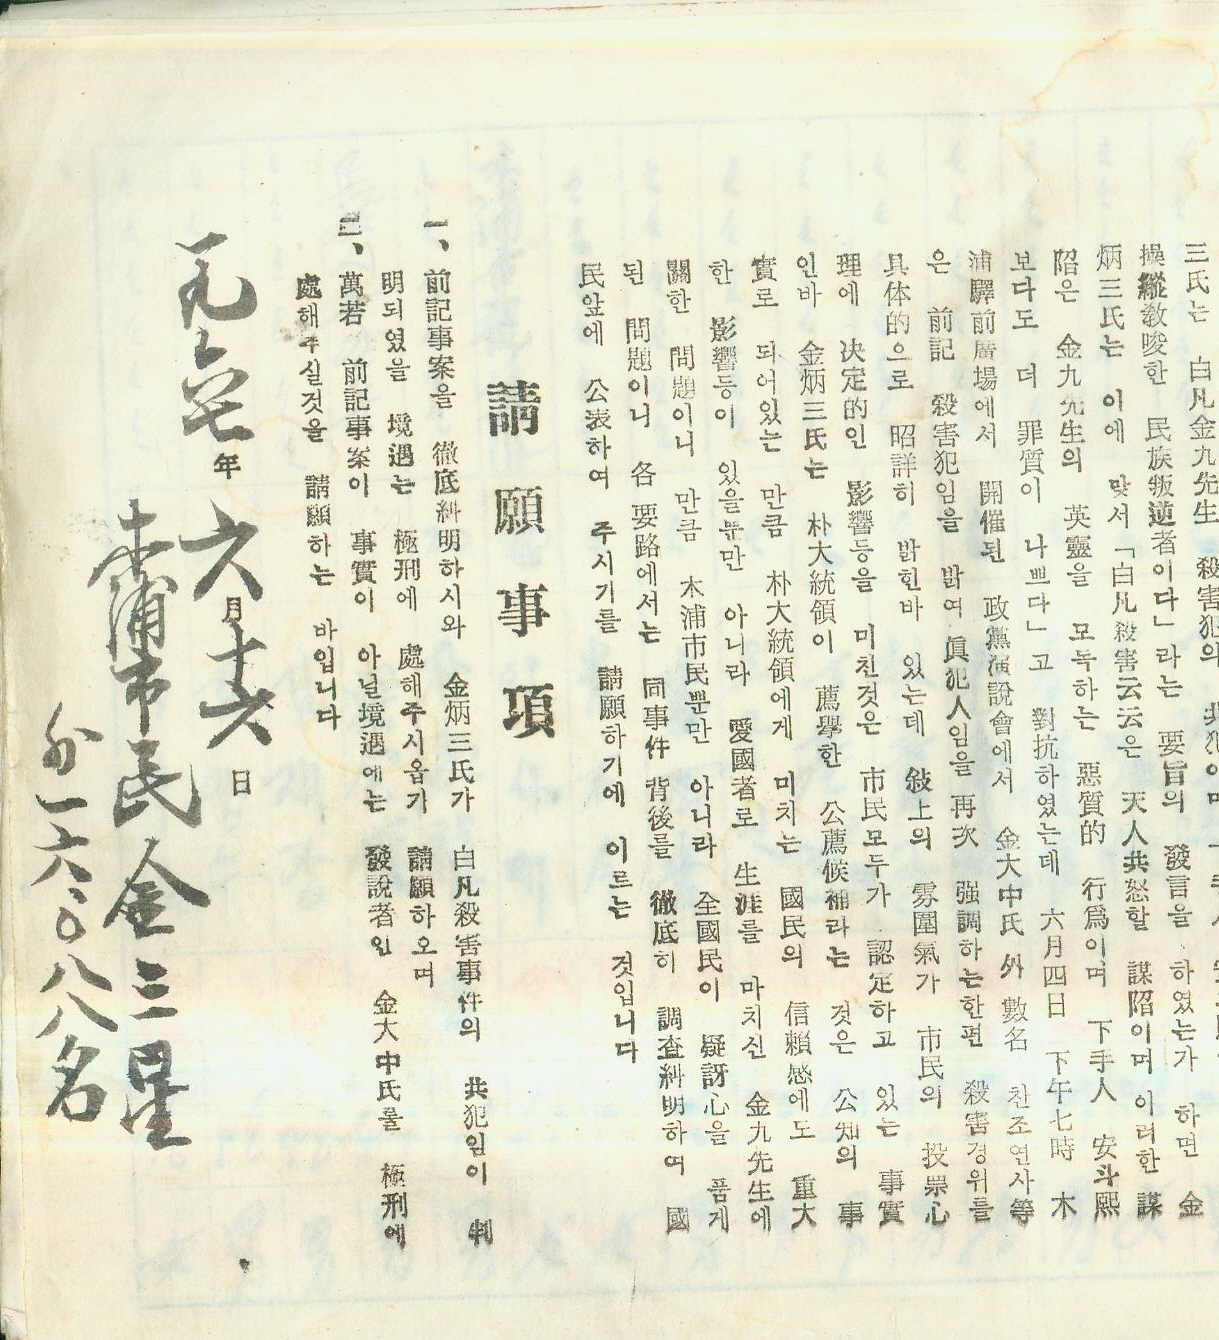 三氏는 白凡金九先生 殺害犯의 共犯이며
操縱敎唆한 民族叛逆者이다」라는 要旨의 發言을 하였는가 하면 金
炳三氏는 이에 맞서 「白凡殺害云云은 天人共怒할 謀陷이며 이러한 謀
陷은 金九先生의 英靈을 모독하는 惡質的 行爲이며 下手人 安斗熙
보다도 더 罪質이 나쁘다」고 對抗하였는데 六月四日 下午七時 木
浦驛前廣場에서 開催된 政黨演說會에서 金大中氏 外 數名 찬조연사等
은 前記 殺害犯임을 밝여 眞犯人임을 再次 强調하는한편 殺害경위를
具体的으로 昭詳히 밝힌바 있는데 敍上의 雰圍氣가 市民의 投票心
理에 決定的인 影響등을 미친것은 市民모두가 認定하고 있는 事實
인바 金炳三氏는 朴大統領이 薦擧한 公薦候補라는 것은 公知의 事
實로 되어있는 만큼 朴大統領에게 미치는 國民의 信賴感에도 重大
한 影響등이 있을뿐만 아니라 愛國者로 生涯를 마치신 金九先生에
關한 問題이니 만큼 木浦市民뿐만 아니라 全國民이 疑訝心을 품게
된 問題이니 各 要路에서는 同事件 背後를 徹底히 調査糾明하여 國
民앞에 公表하여 주시기를 請願하기에 이르는 것입니다
請願事項
一、前記事案을 徹底糾明하시와 金炳三氏가 白凡殺害事件의 共犯임이 判
明되였을 境遇는 極刑에 處해주시옵기 請願하오며
二、萬若 前記事案이 事實이 아닐境遇에는 發說者인 金大中氏를 極刑에
處해주실것을 請願하는 바입니다
一九六七年 六月十六日
木浦市民 金三星
外一六、〇八八名